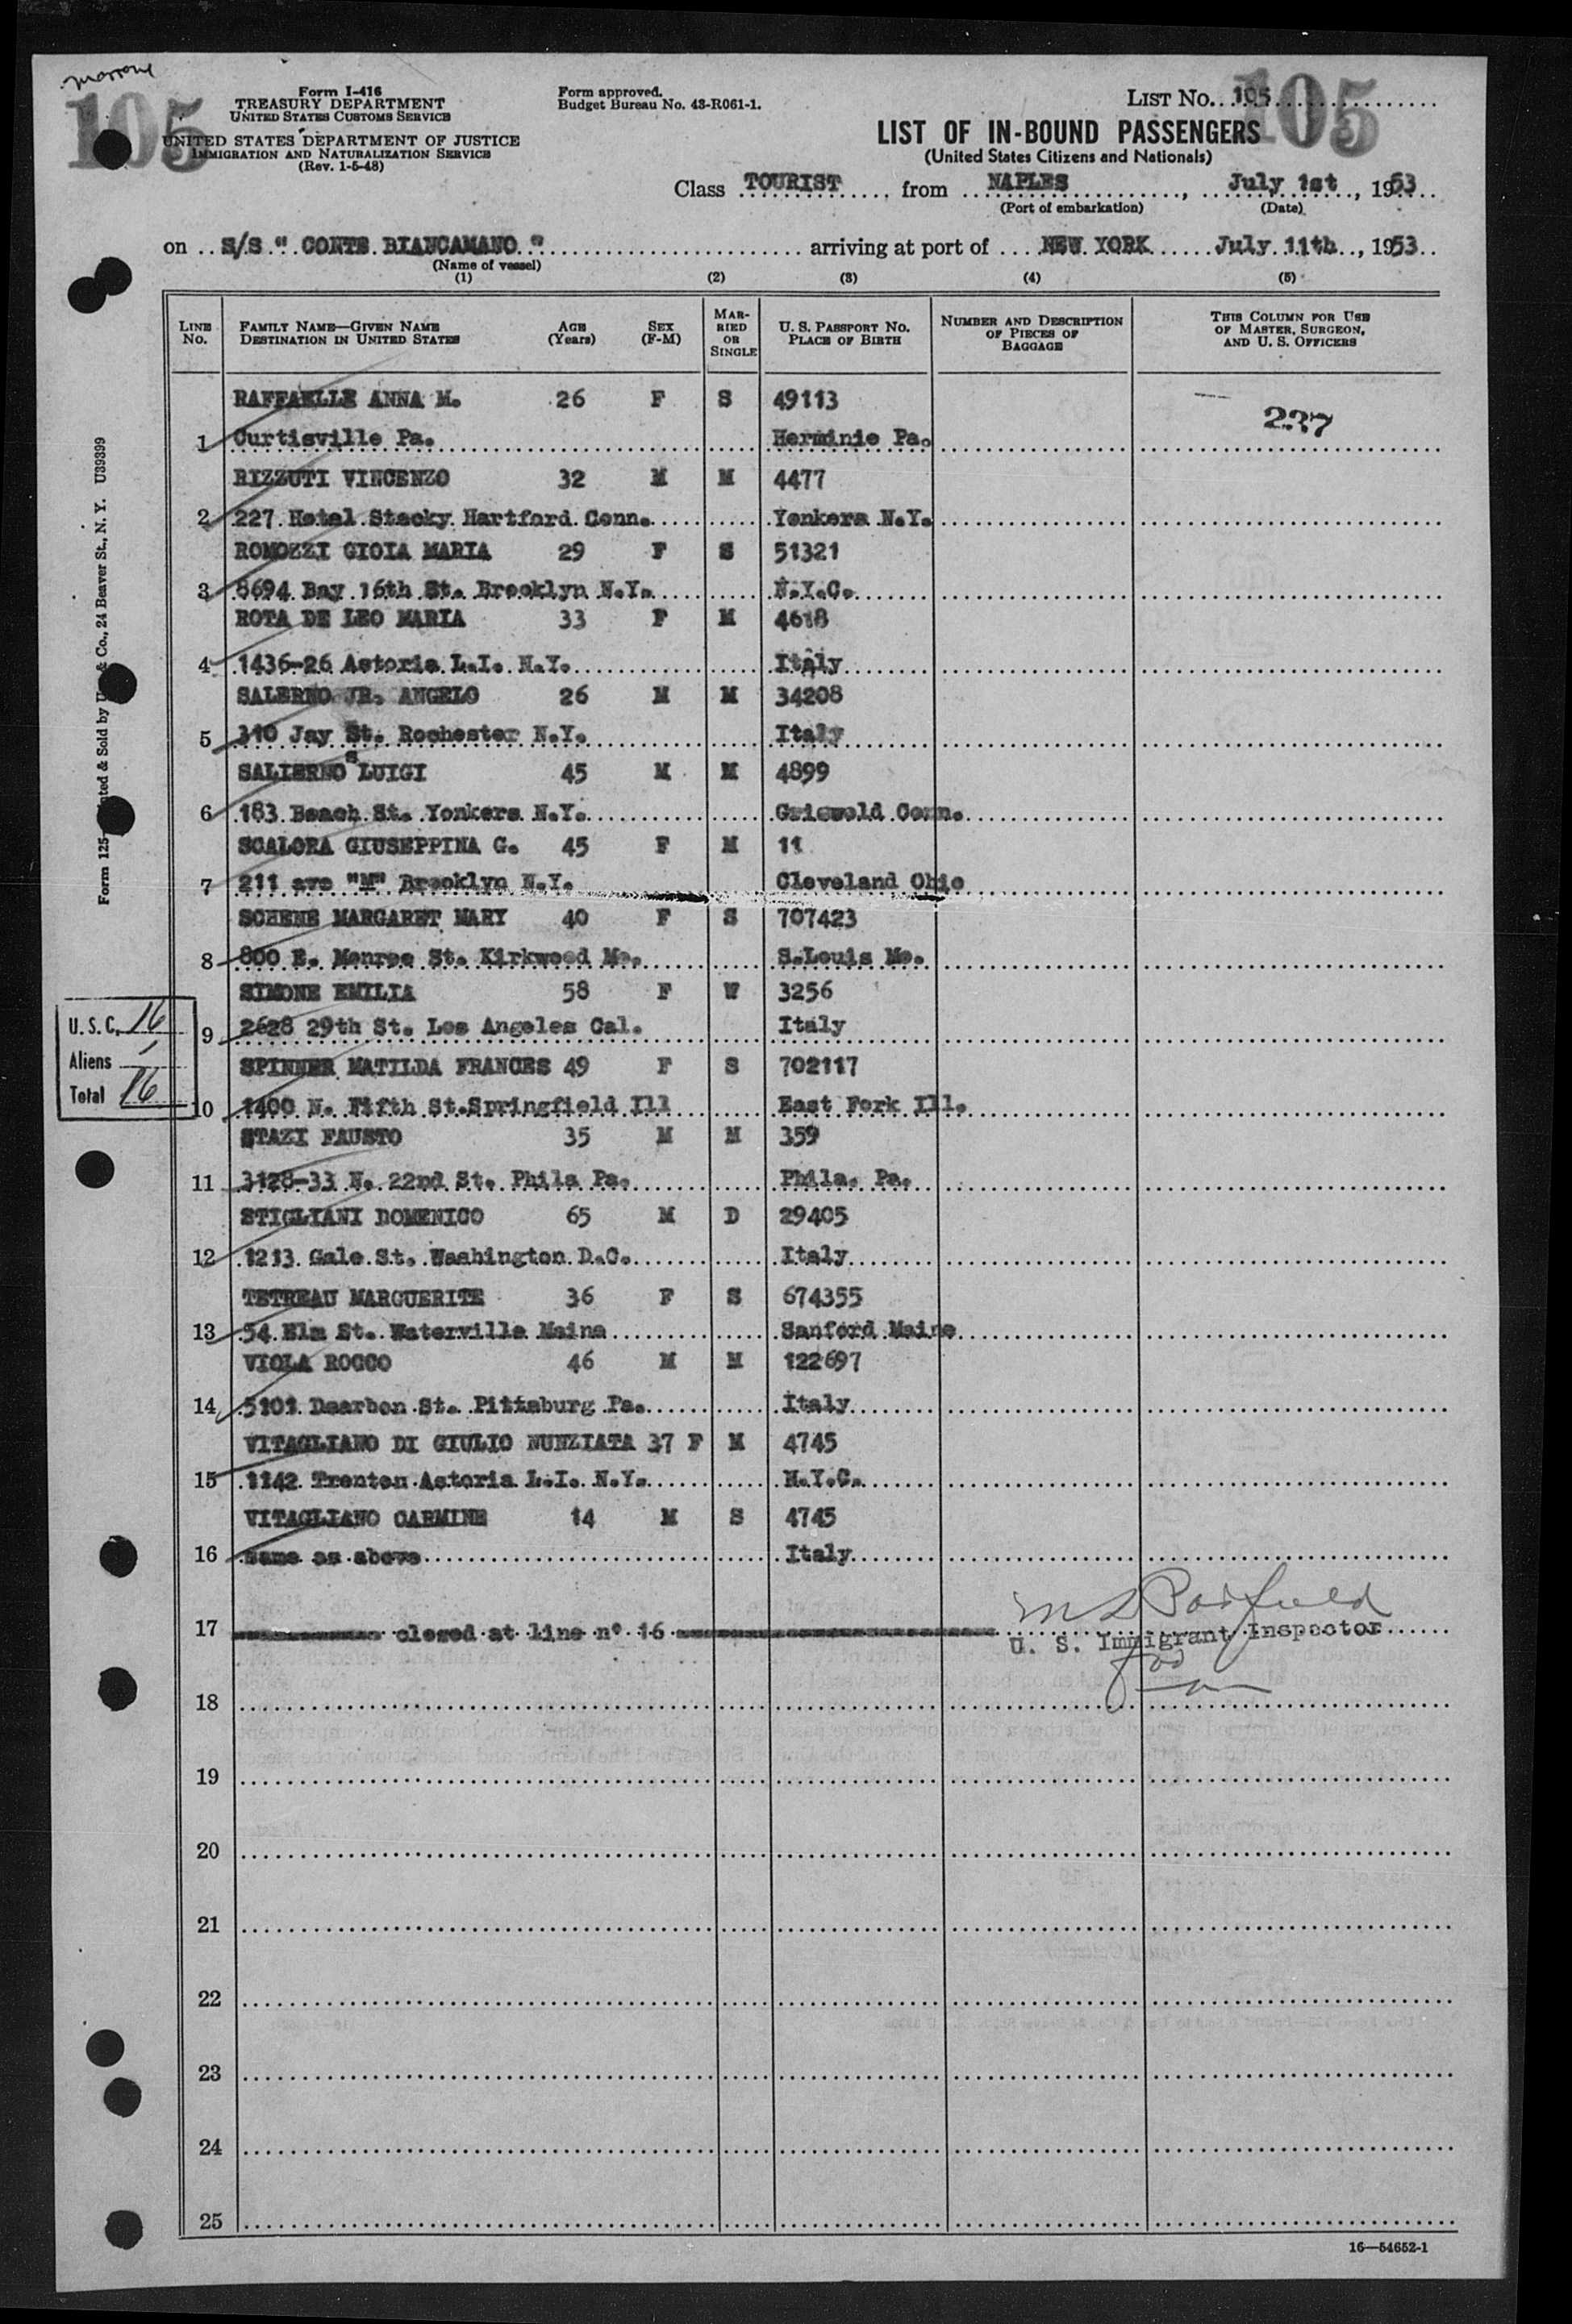 105
Form I-416
TREASURY DEPARTMENT
UNITED STATES CUSTOMS SERVICE
UNITED STATES DEPARTMENT OF JUSTICE
IMMIGRATION AND NATURALIZATION SERVICE
(Rev. 1-5-48)
Form approved.
Budget Bureau No. 43-R061-1.
LIST No. 105
105
LIST OF IN-BOUND PASSENGERS
(United States Citizens and Nationals)
Class TOURIST from NAPLES, July 1st, 1953
(Port of embarkation) (Date)
on S/S " CONTE BIANCAMANO " arriving at port of NEW YORK July 11th, 1953
(Name of vessel)
(1) (2) (3) (4) (5)
LINE No. FAMILY NAME—GIVEN NAME DESTINATION IN UNITED STATES AGE (Years) SEX (F-M) MARRIED OR SINGLE U. S. PASSPORT NO. PLACE OF BIRTH NUMBER AND DESCRIPTION OF PIECES OF BAGGAGE THIS COLUMN FOR USE OF MASTER, SURGEON, AND U. S. OFFICERS
RAFFAELLE ANNA M. 26 F S 49113
237
1 Curtisville Pa. Herminie Pa.
RIZZUTI VINCENZO 32 M M 4477
2 227 Hotel Stacky Hartford Conn. Yonkers N.Y.
ROMOZZI GIOIA MARIA 29 F S 51321
3 8694 Bay 16th St. Brooklyn N.Y. N.Y.C.
ROTA DE LEO MARIA 33 F M 4618
4 1436-26 Astoria L.I. N.Y. Italy
SALERNO JR. ANGELO 26 M M 34208
5 310 Jay St. Rochester N.Y. Italy
SALIERNO LUIGI 45 M M 4899
6 183 Beach St. Yonkers N.Y. Griswold Conn.
SCALORA GIUSEPPINA G. 45 F M 11
7 211 ave "M" Brooklyn N.Y. Cleveland Ohio
SCHENE MARGARET MARY 40 F S 707423
8 800 E. Monroe St. Kirkwood Mo. S.Louis Mo.
SIMONE EMILIA 58 F W 3256
9 2628 29th St. Los Angeles Cal. Italy
SPINNER MATILDA FRANCES 49 F S 702117
10 1400 N. Fifth St.Springfield Ill East Fork Ill.
STAZI FAUSTO 35 M M 359
11 3128-33 N. 22nd St. Phila Pa. Phila. Pa.
STIGLIANI DOMENICO 65 M D 29405
12 1213 Gale St. Washington D.C. Italy
TETREAU MARGUERITE 36 F S 674355
13 54 Elm St. Waterville Maine Sanford Maine
VIOLA ROCCO 46 M M 122697
14 5101 Dearbon St. Pittsburg Pa. Italy
VITAGLIANO DI GIULIO NUNZIATA 37 F M 4745
15 1142 Trenton Astoria L.I. N.Y. N.Y.C.
VITAGLIANO CARMINE 14 M S 4745
16 Same as above Italy
17 closed at line n° 16
U. S. Immigrant Inspector
18
19
20
21
22
23
24
25
16—54652-1
U. S. C. 16
Aliens
Total 16
Form 125 Co., 24 Beaver St., N. Y. U39399